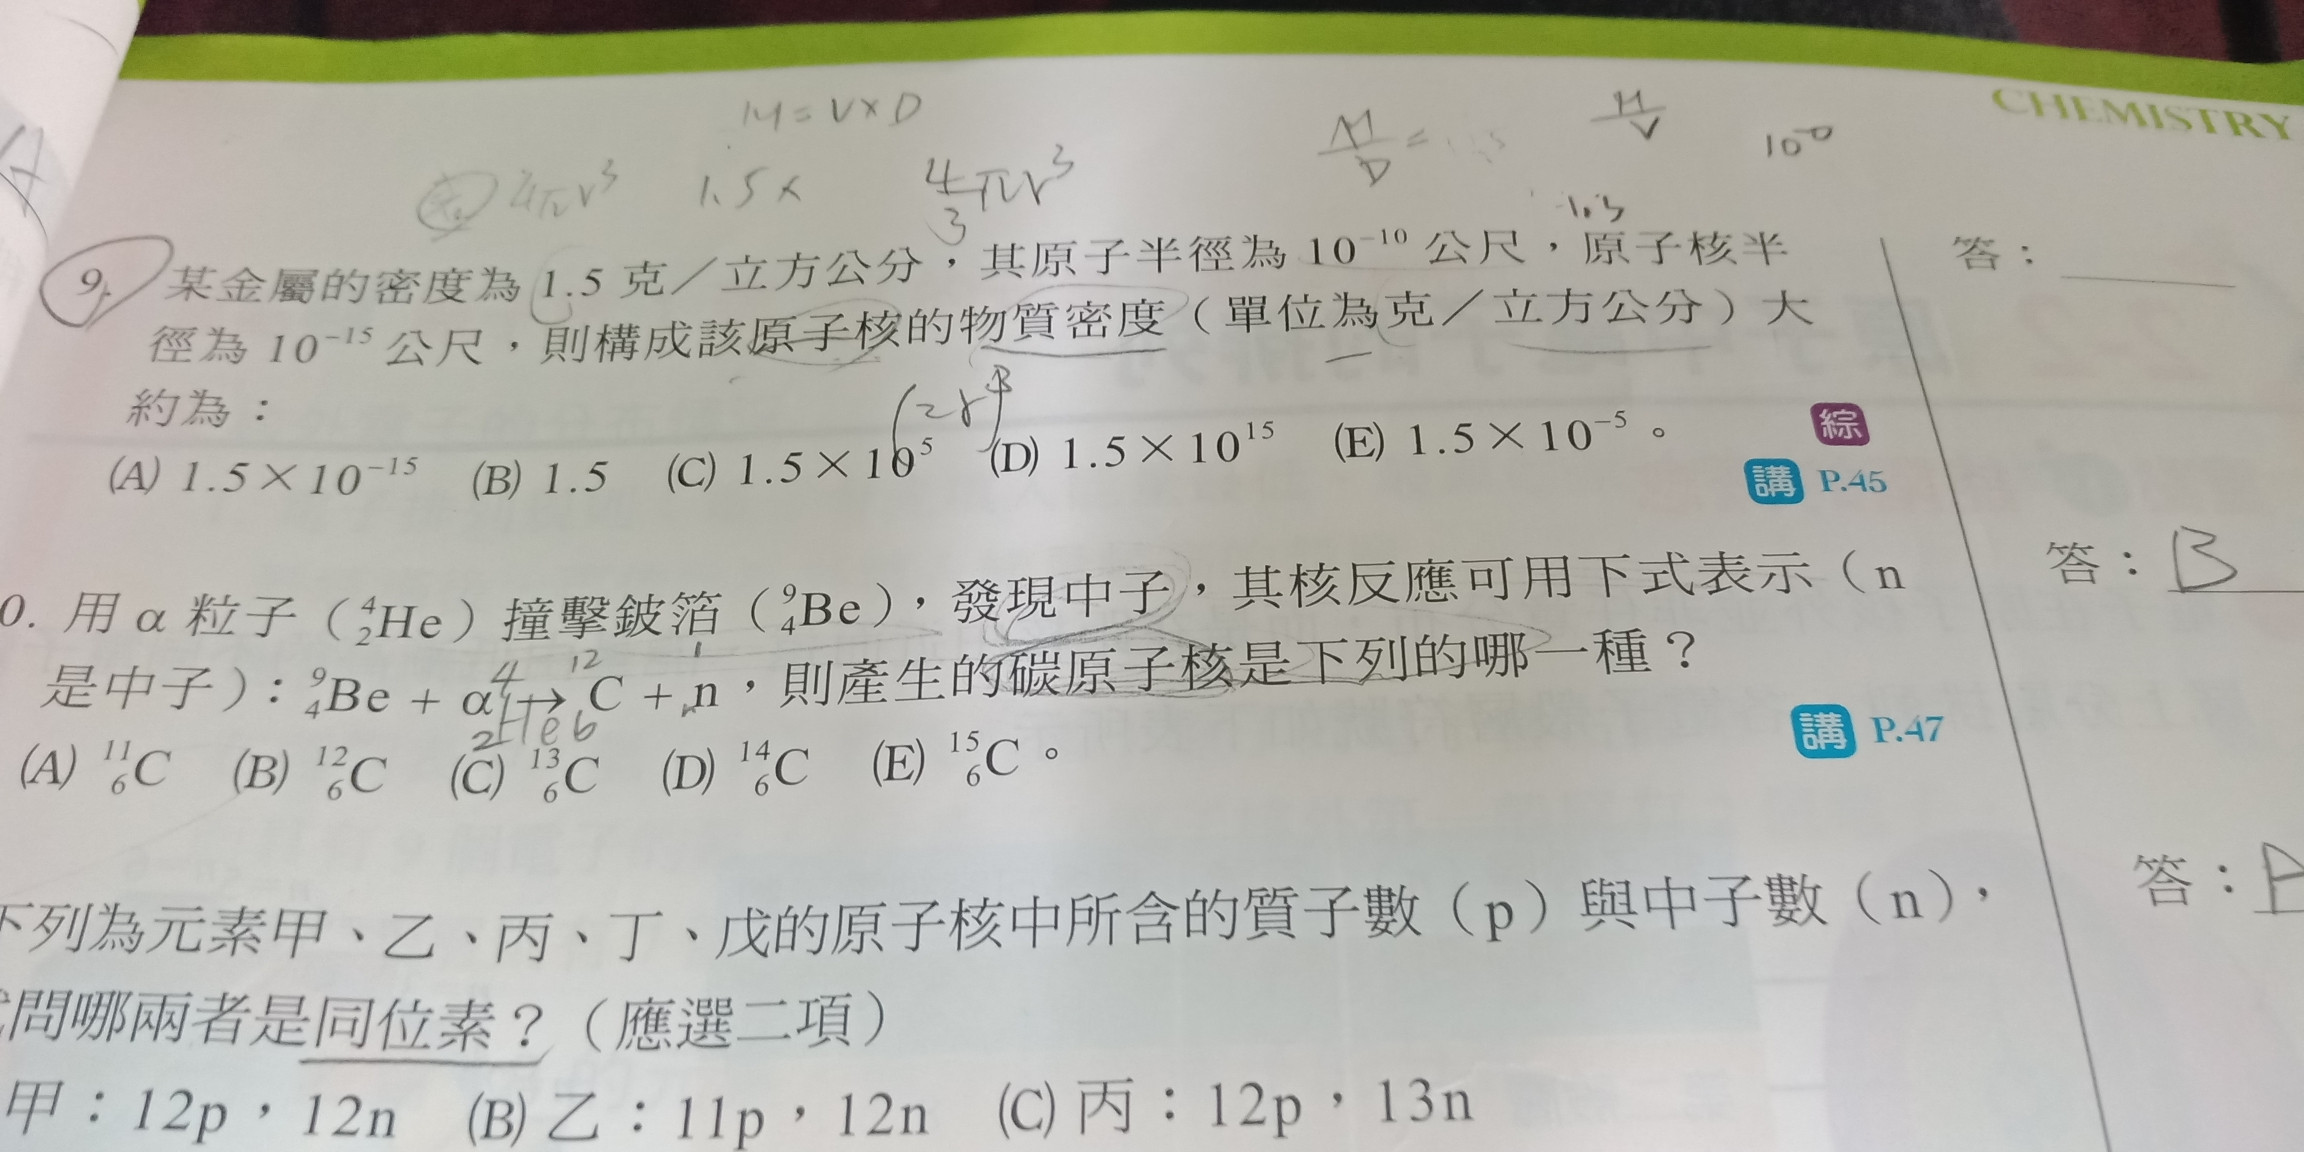 CHEMISTRY
M = V × D
M/D =
M/V
4πr³
1.5 ×
4/3 πr³
9. 某金屬的密度為 1.5 克／立方公分，其原子半徑為 10⁻¹⁰ 公尺，原子核半
答：
徑為 10⁻¹⁵ 公尺，則構成該原子核的物質密度（單位為克／立方公分）大
約為：
(2r)³
(A) 1.5×10⁻¹⁵ (B) 1.5 (C) 1.5×10⁵ (D) 1.5×10¹⁵ (E) 1.5×10⁻⁵。
綜
講 P.45
0. 用 α 粒子（⁴₂He）撞擊鈹箔（⁹₄Be），發現中子，其核反應可用下式表示（n
答：B
是中子）：⁹₄Be + α → C + n，則產生的碳原子核是下列的哪一種？
4 12 1
2 He 6
(A) ¹¹₆C (B) ¹²₆C (C) ¹³₆C (D) ¹⁴₆C (E) ¹⁵₆C。
講 P.47
下列為元素甲、乙、丙、丁、戊的原子核中所含的質子數（p）與中子數（n），
答：
問哪兩者是同位素？（應選二項）
甲：12p，12n (B) 乙：11p，12n (C) 丙：12p，13n